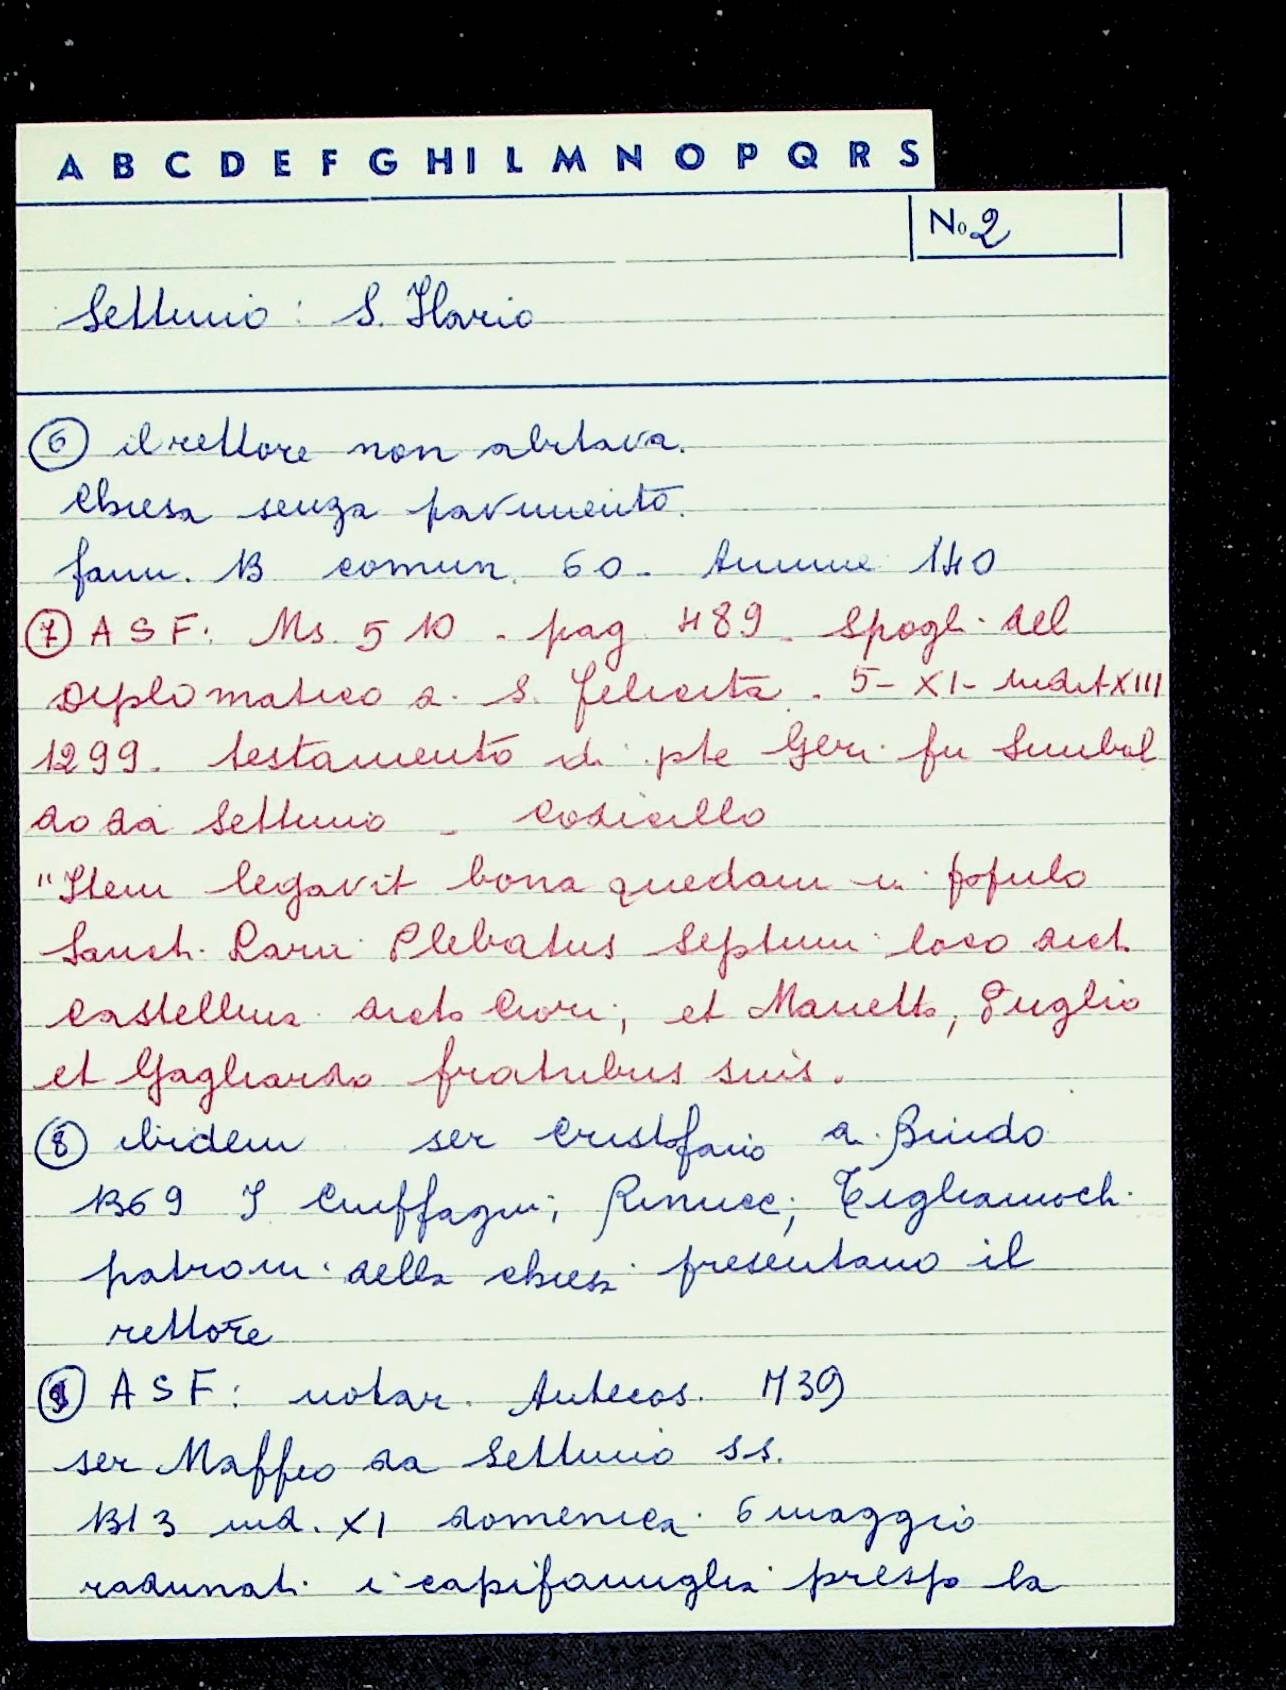 A B C D E F G H I L M N O P Q R S
No 2
Settimo : S. Ilario
6 il rettore non abitava.
Chiesa senza pavimento.
fam. 13 comun. 60 - Anime 140
7 ASF: Ms. 510 - pag. 489 - Spogli del
Diplomatico a. S. Felicita. 5 - XI - indit XIII
1299. testamento di pte Geri fu Simbal
do da Settimo - Codicillo
"Item legavit bona quedam in populo
Sancti Larii Plebatus Septimi loco dict.
Castellina dicto Ciori; et Manetto, Puglio
et Gagliardo fratribus suis.
8 ibidem ser Cristofano a. Bindo
1369 I Ciuffagni; Rinucc; Tigliamochi
patroni della chiesa presentano il
rettore
9 ASF: notar. Antecos. M39
ser Maffeo da Settimo ss.
1313 ind. XI domenica 6 maggio
radunati i capifamiglia presso la